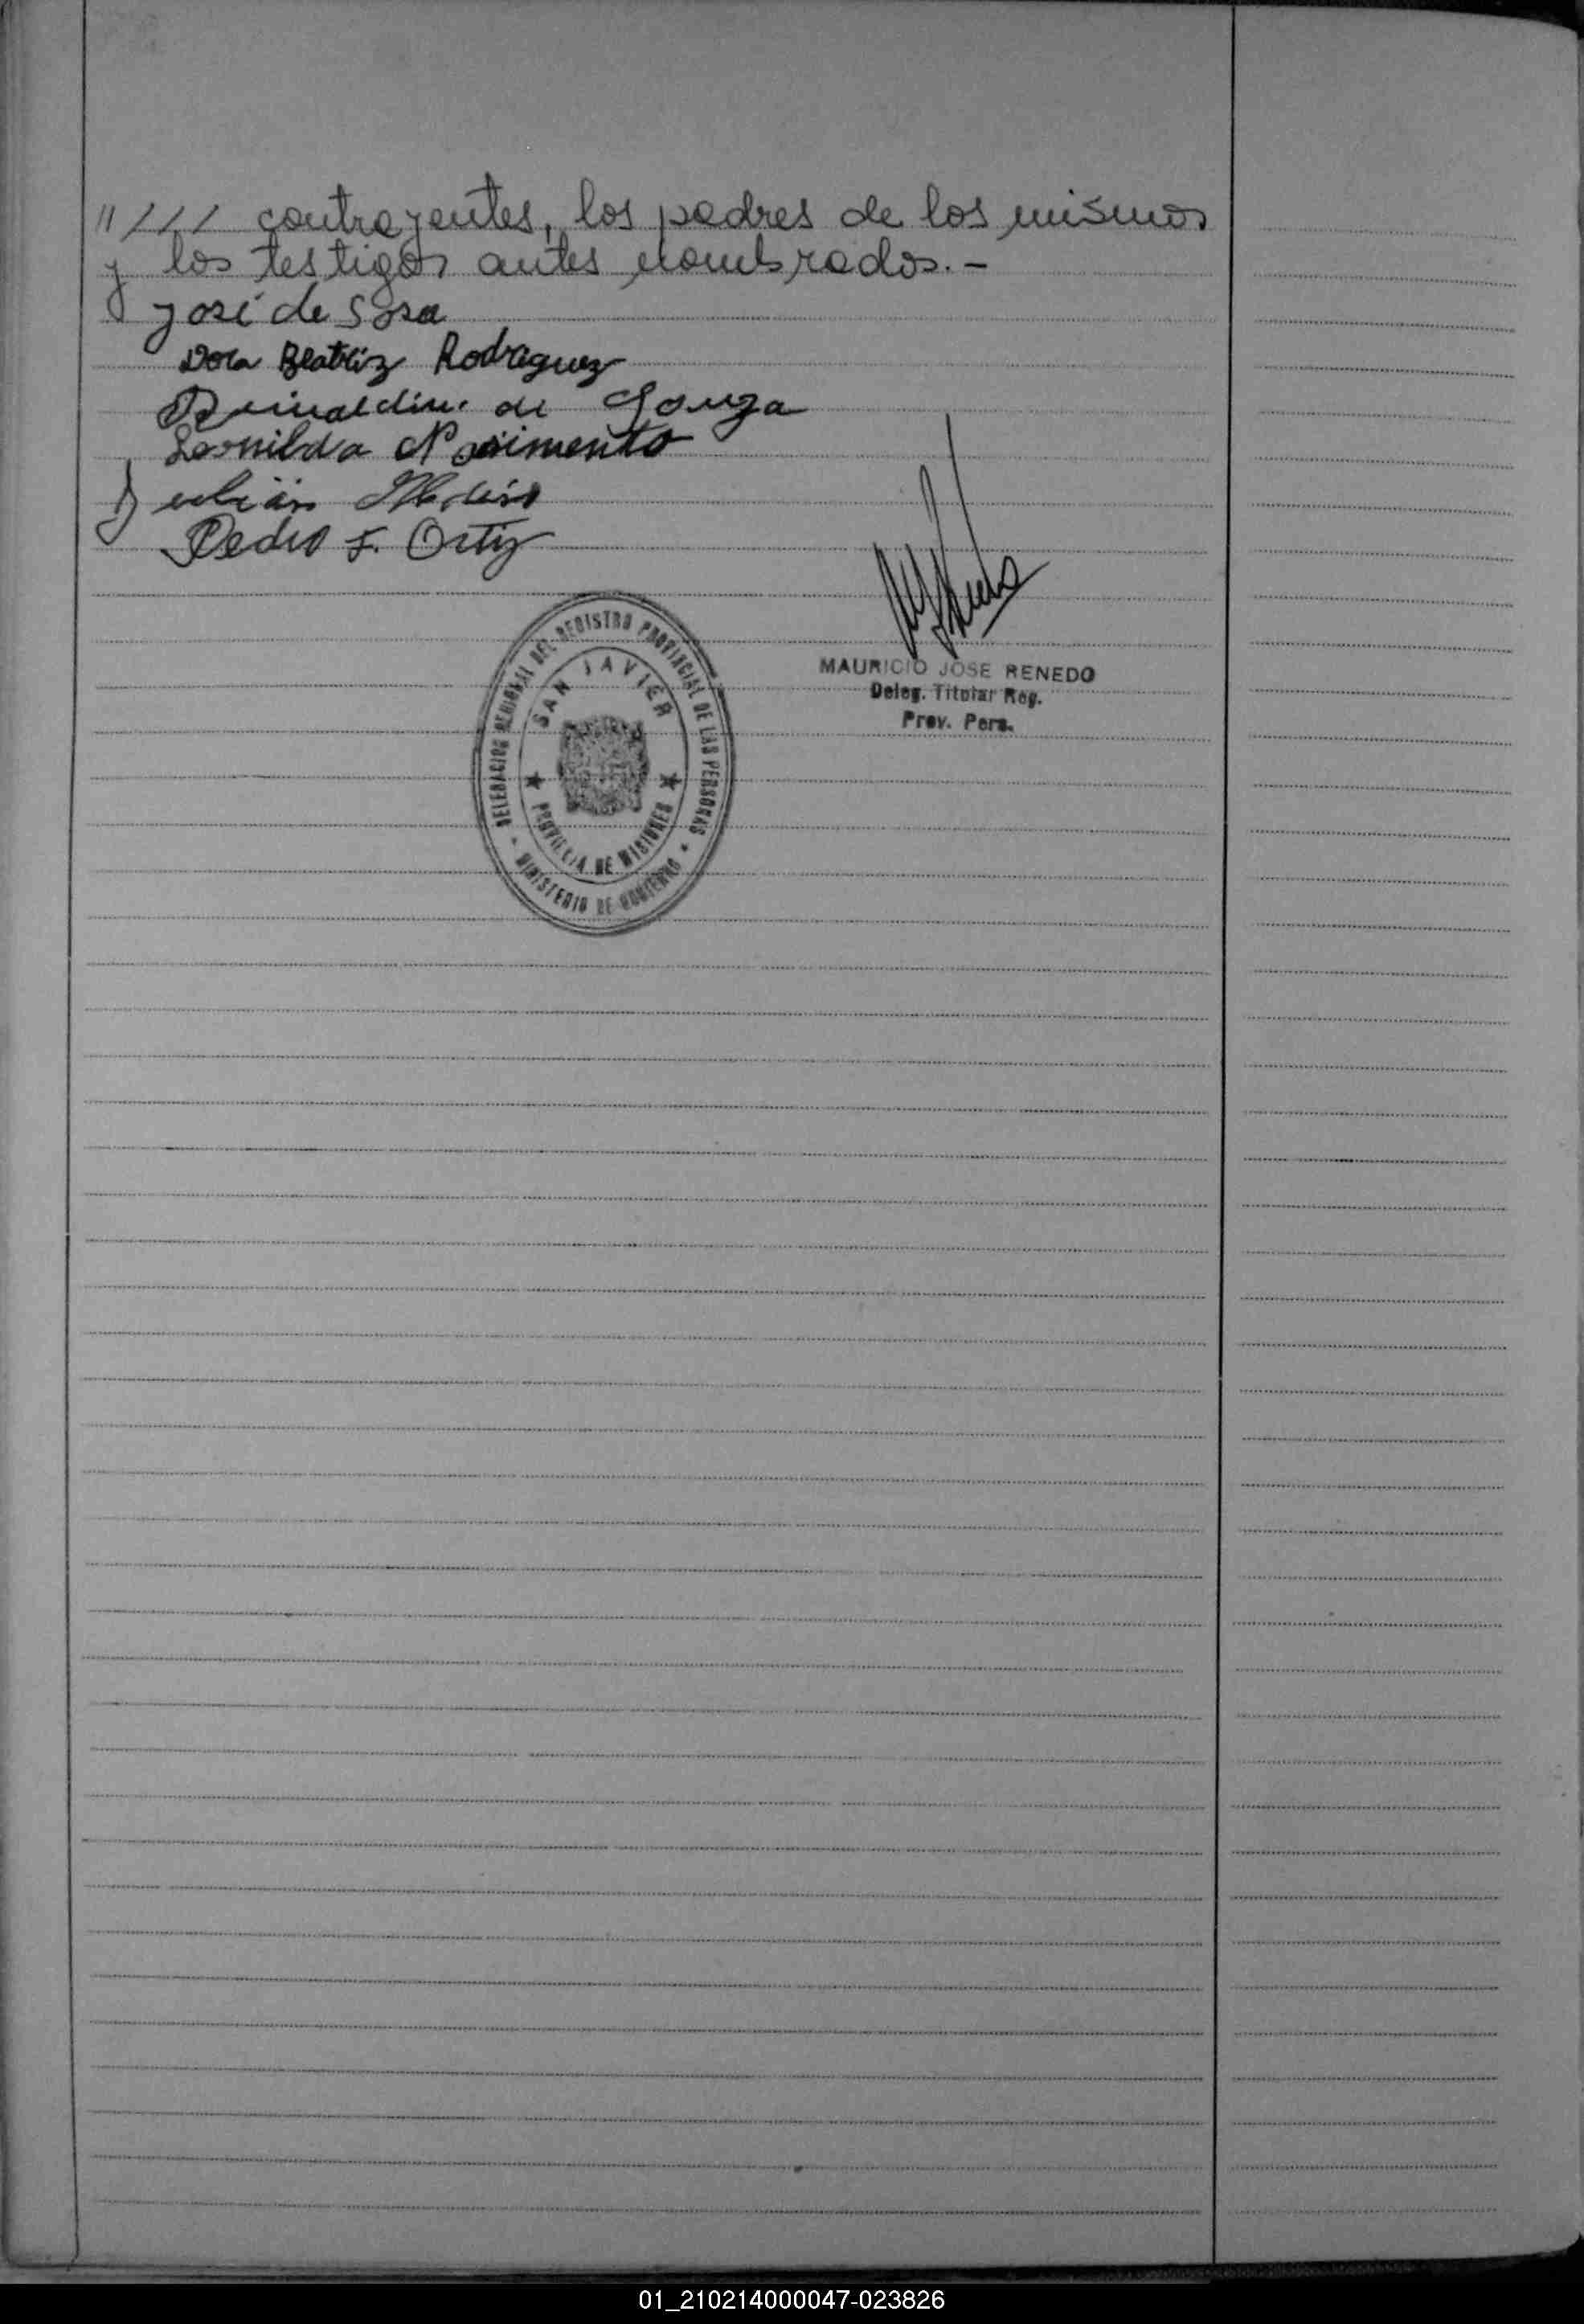 "/// contrayentes, los padres de los mismos
y los testigos antes nombrados.-
José de Sosa
Dora Beatriz Rodriguez
de Souza
Leonilda Nascimento
Julián
Pedro F. Ortiz
DELEGACION REGIONAL DEL REGISTRO PROVINCIAL DE LAS PERSONAS
SAN JAVIER
PROVINCIA DE MISIONES
MINISTERIO DE GOBIERNO
MAURICIO JOSE RENEDO
Deleg. Titular Reg.
Prov. Pers.
01_210214000047-023826